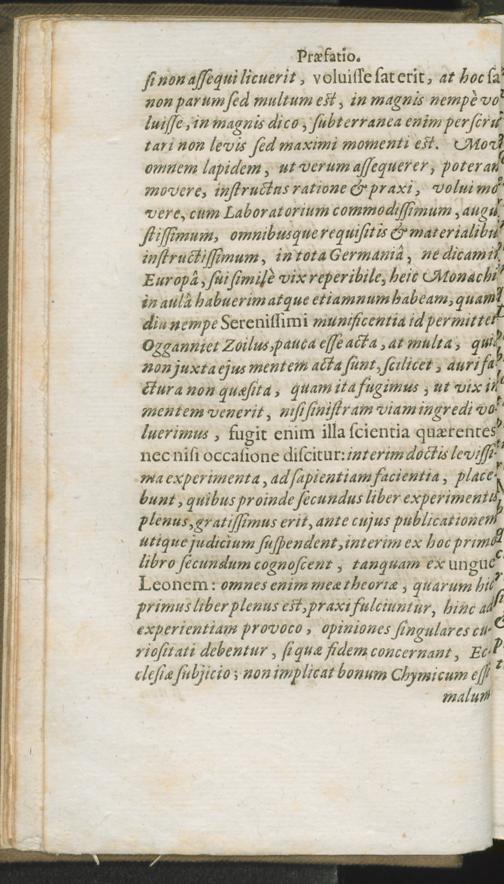 Præfatio.
si non assequi licuerit, voluisse sat erit, at hoc sa
non parum sed multum est, in magnis nempè vo
luisse, in magnis dico, subterranea enim perscru
tari non levis sed maximi momenti est. Mov
omnem lapidem, ut verum assequerer, poteram
movere, instructus ratione & praxi, volui mo
vere, cum Laboratorium commodissimum, augu
stissimum, omnibusque requisitis & materialibu
instructissimum, in tota Germaniâ, ne dicam in
Europâ, sui similè vix reperibile, heic Monachi
in aulâ habuerim atque etiamnum habeam, quam
diu nempe Serenissimi munificentia id permittet
Ogganniet Zoilus, pauca esse acta, at multa, quia
non juxta ejus mentem acta sunt, scilicet, aurifa
ctura non quæsita, quam ita fugimus, ut vix in
mentem venerit, nisi sinistram viam ingredi vo
luerimus, fugit enim illa scientia quærentes
nec nisi occasione discitur: interim doctis levissi-
ma experimenta, ad sapientiam facientia, place
bunt, quibus proinde secundus liber experimentu
plenus, gratissimus erit, ante cujus publicationem
utique judicium suspendent, interim ex hoc primo
libro secundum cognoscent, tanquam ex ungue
Leonem: omnes enim meæ theoriæ, quarum hic
primus liber plenus est, praxi fulciuntur, hinc ad
experientiam provoco, opiniones singulares cu-
riositati debentur, si quæ fidem concernant, Ec-
clesiæ subjicio; non implicat bonum Chymicum esse
malum